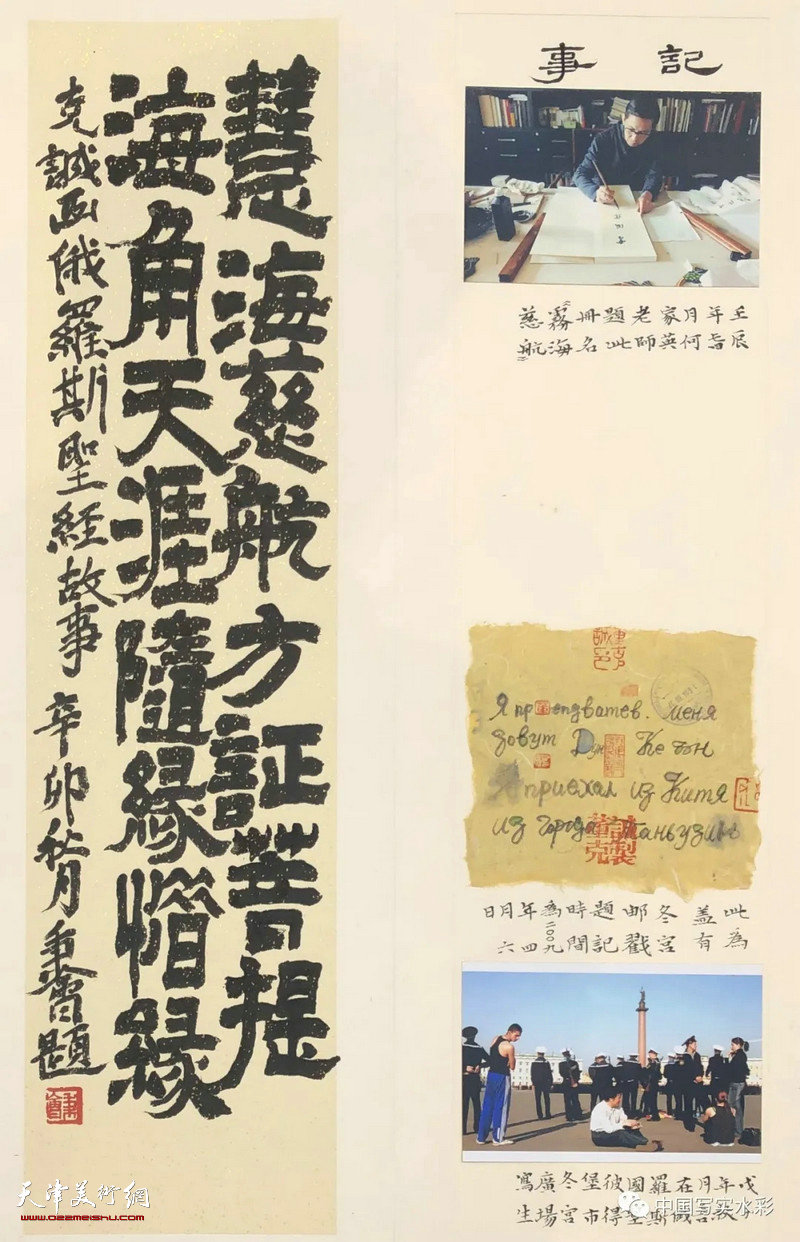 記事
慧海慈航方証菩提
海角天涯隨緣惜緣
克誠画俄羅斯聖經故事 辛卯秋月 題
壬辰年月何家英老師題此冊名霧海慈航
меня
зовут Дун Ке Чэн
Я приехал из Китя
из города
董克誠製
此為蓋有冬宮邮戳題記時間為二〇〇九年四月六日
戊年月在俄羅斯國聖彼得堡市冬宮廣場寫生
天津美術網
www.022meishu.com
中国写实水彩